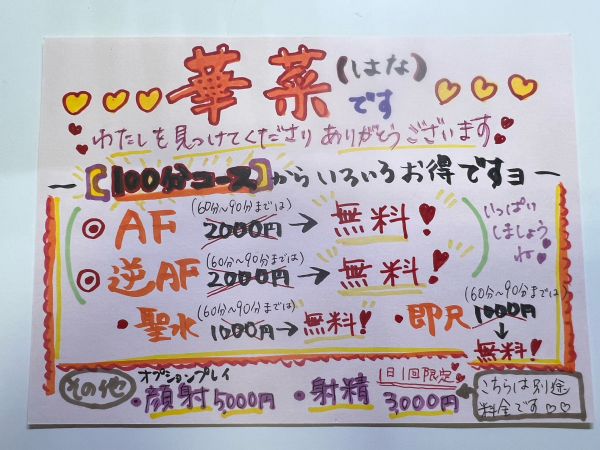 華菜(はな)です
わたしを見つけてくださりありがとうございます
【100分コース】からいろいろお得ですヨ
◎AF (60分~90分までは) 2000円→無料!
◎逆AF (60分~90分までは) 2000円→無料!
いっぱいしましょうね
・聖水 (60分~90分までは) 1000円→無料!
・即尺 (60分~90分までは) 1000円→無料!
その他
オプションプレイ
・顔射 5,000円
・射精 1日1回限定 3,000円
こちらは別途
料金です♡♡